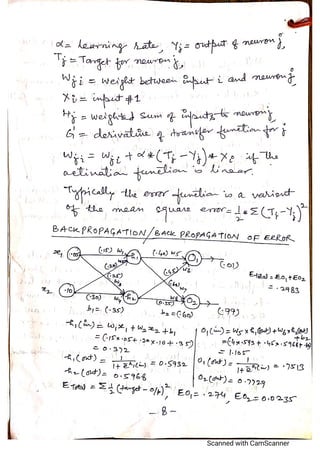 α = Learning Rate, Yj = output of neuron j,
Tj = Target for neuron j,
Wji = weight between input i and neuron j
Xi = input #1
Hj = weighted sum of inputs to neuron j
G' = derivative of transfer function for j
Wji = Wji + α*(Tj - Yj)*Xi if the
activation function is linear.
Typically the error function is a variant
of the mean square error = 1/2 * Σ(Tj - Yj)²
BACKPROPAGATION / BACK PROPAGATION OF ERROR
x1 .05 (.15) w1 h1 (.40) w5 O1 (.01)
(.20) (.25) (.45) (.50)
E total = EO1 + EO2
= .2983
x2 .10 (.30) w4 h2 (0.55) w8 O2 (.99)
b1 = (.35) b2 = (.60)
h1(in) = w1x1 + w2x2 + b1
= (.15×.05 + .20×.10 + .35)
= 0.3
h1(out) = 0.5932
h2(out) = 0.5968
O1(in) = w5 × h1(out) + w6 × h2(out) + b2
= (.4×.593 + .45×.5968 + .6)
= 1.105
O1(out) = .7513
O2(out) = 0.7729
E Total = Σ 1/2 (target - o/p)², EO1 = .274, EO2 = 0.0235
- 8 -
Scanned with CamScanner